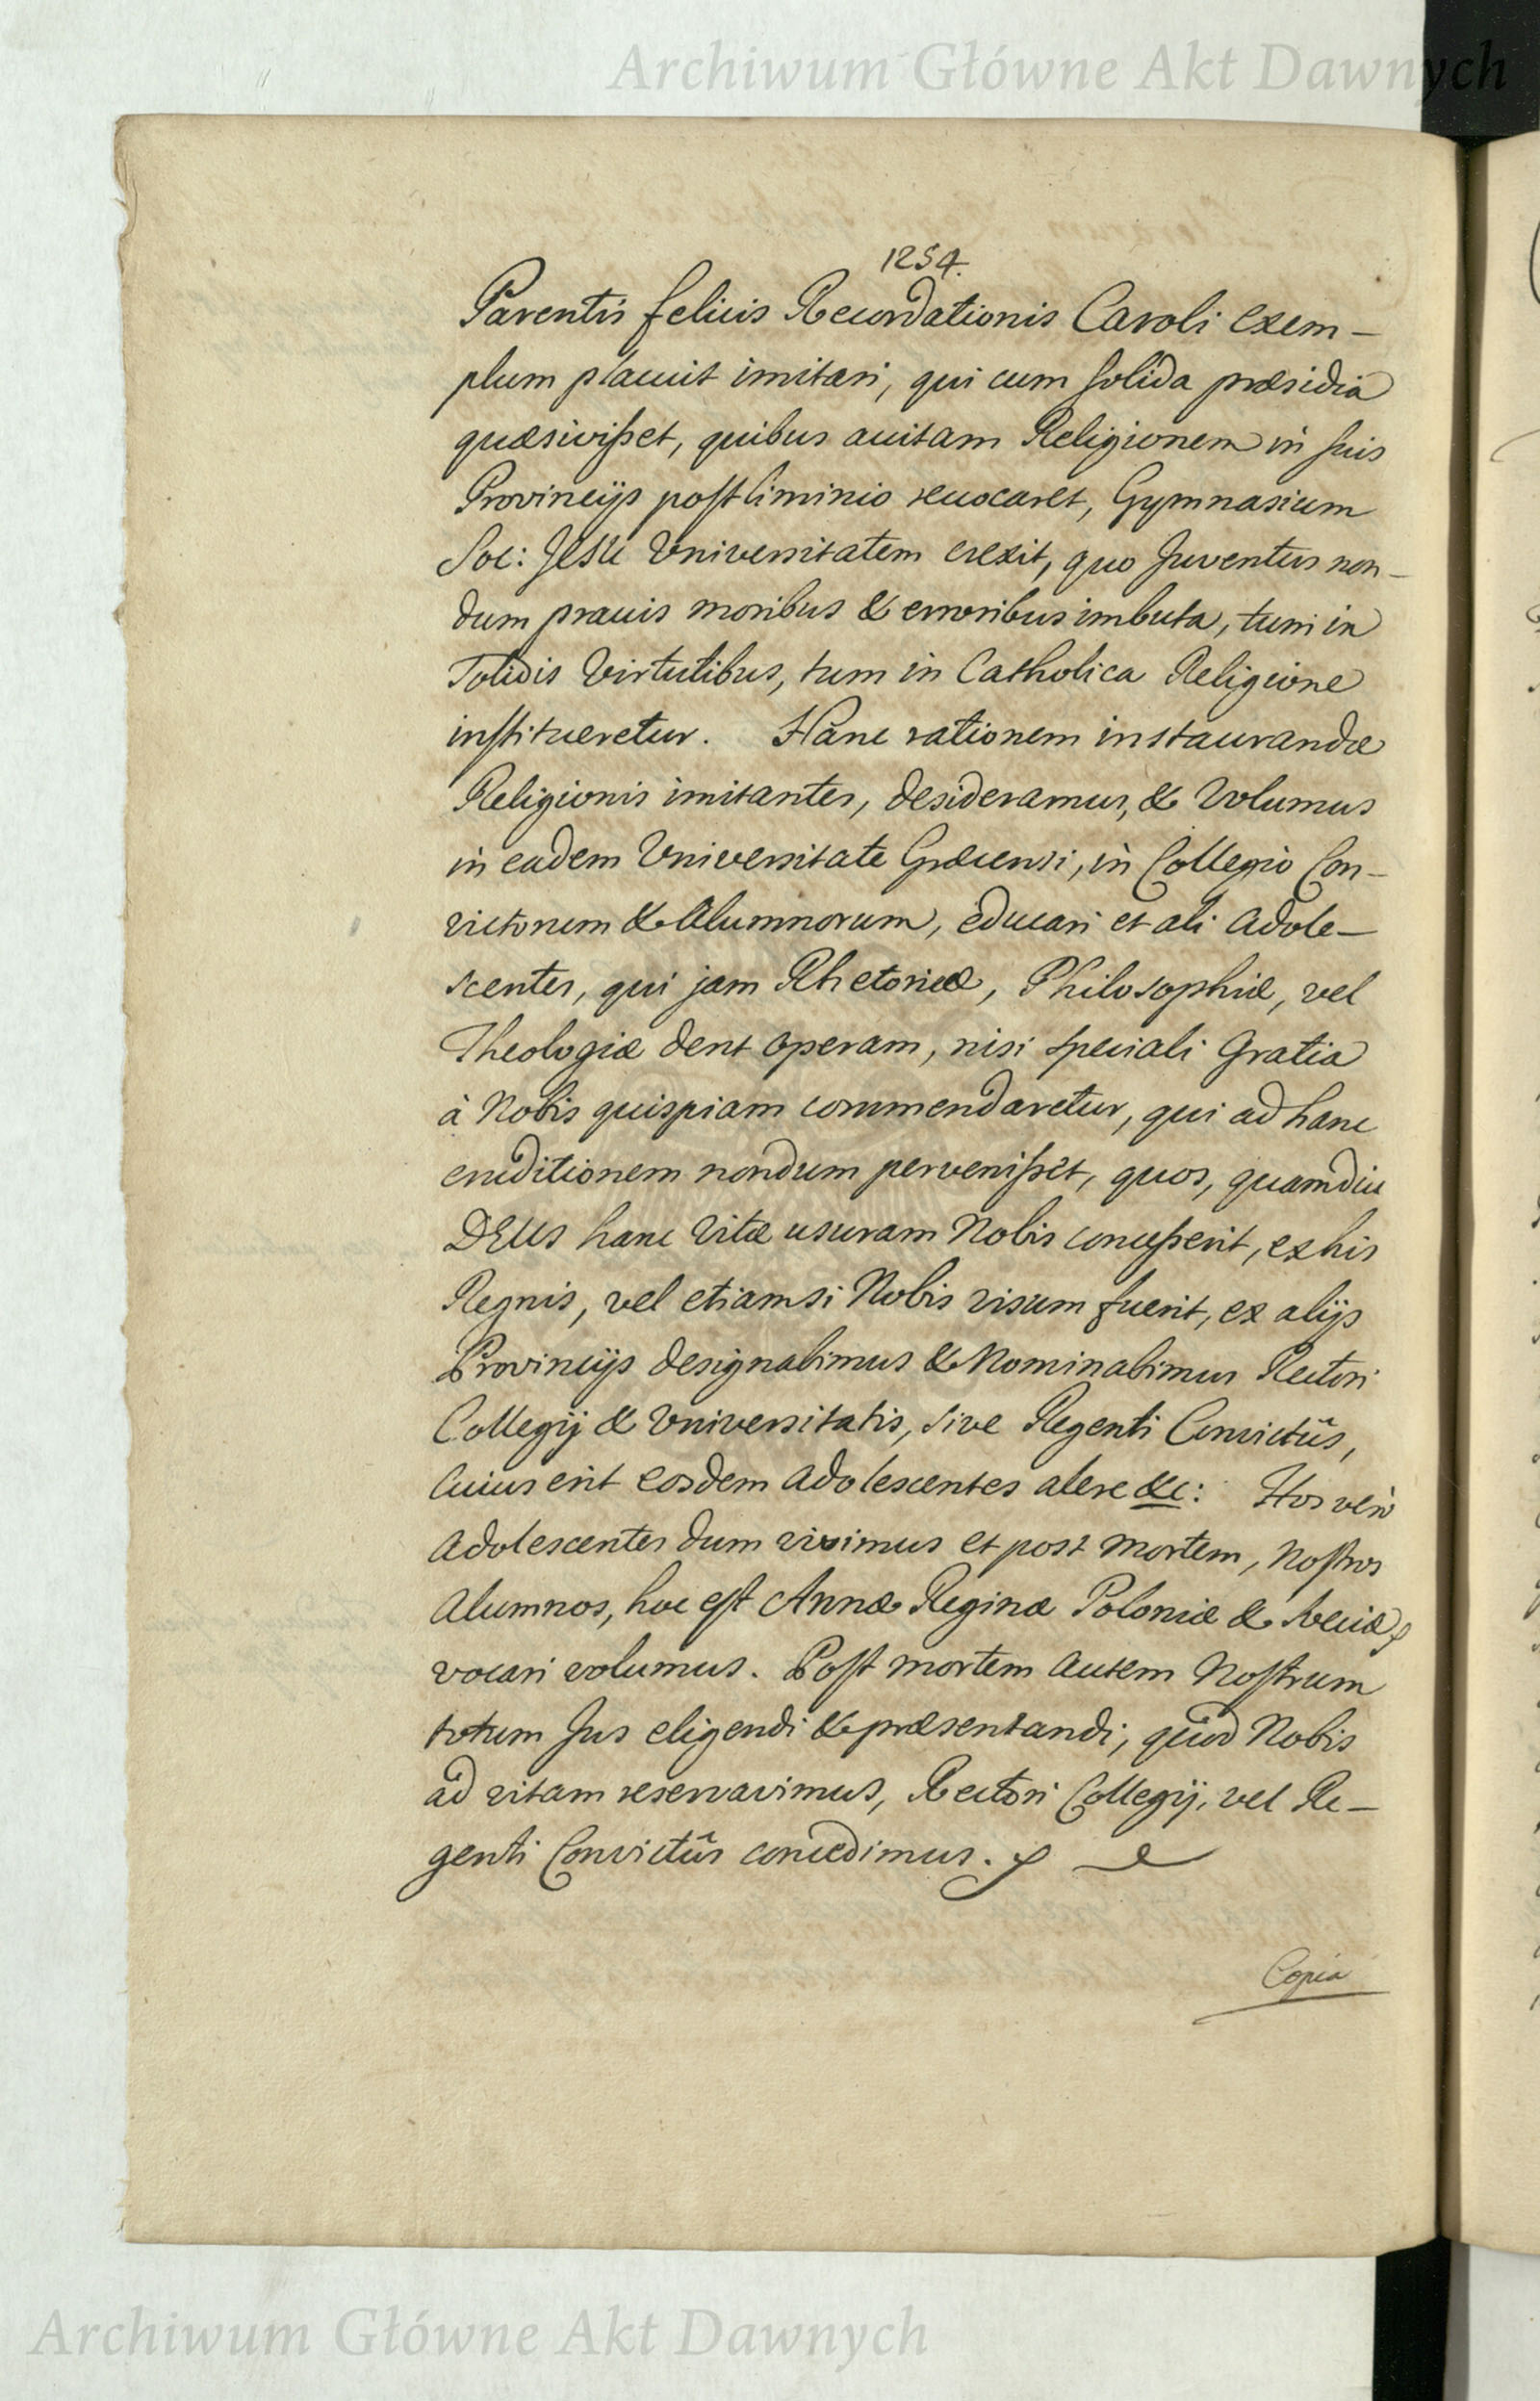 Archiwum Główne Akt Dawnych
1254.
Parentis felicis Recordationis Caroli exem-
plum placuit imitari, qui cum solida præsidia
quæsivisset, quibus auitam Religionem in suis
Provincijs postliminio reuocaret, Gymnasium
Soc: Jesu Vniversitatem erexit, quo Juventus non-
dum prauis moribus & erroribus imbuta, tum in
solidis Virtutibus, tum in Catholica Religione
institueretur. Hanc rationem instaurandæ
Religionis imitantes, desideramus, & Volumus
in eadem Vniversitate Græcensi, in Collegio Con-
victorum & Alumnorum, educari et ali Adole-
scentes, qui jam Rhetoricæ, Philosophiæ, vel
Theologiæ dent operam, nisi speciali Gratia
à Nobis quispiam commendaretur, qui ad hanc
eruditionem nondum pervenisset, quos, quamdiu
DEUS hanc Vitæ usuram Nobis concesserit, ex his
Regnis, vel etiamsi Nobis visum fuerit, ex alijs
Provincijs designabimus & Nominabimus Rectori
Collegij & Vniversitatis, sive Regenti Convictûs,
Cuius erit eosdem Adolescentes alere &c: Hos verò
Adolescentes dum viximus et post mortem, Nostros
Alumnos, hoc est Annæ Reginæ Poloniæ & Sveciæ,
vocari volumus. Post mortem autem Nostrum
totum Jus eligendi & præsentandi, quod Nobis
ad vitam reservavimus, Rectori Collegij, vel Re-
genti Convictûs concedimus.
Copia
Archiwum Główne Akt Dawnych